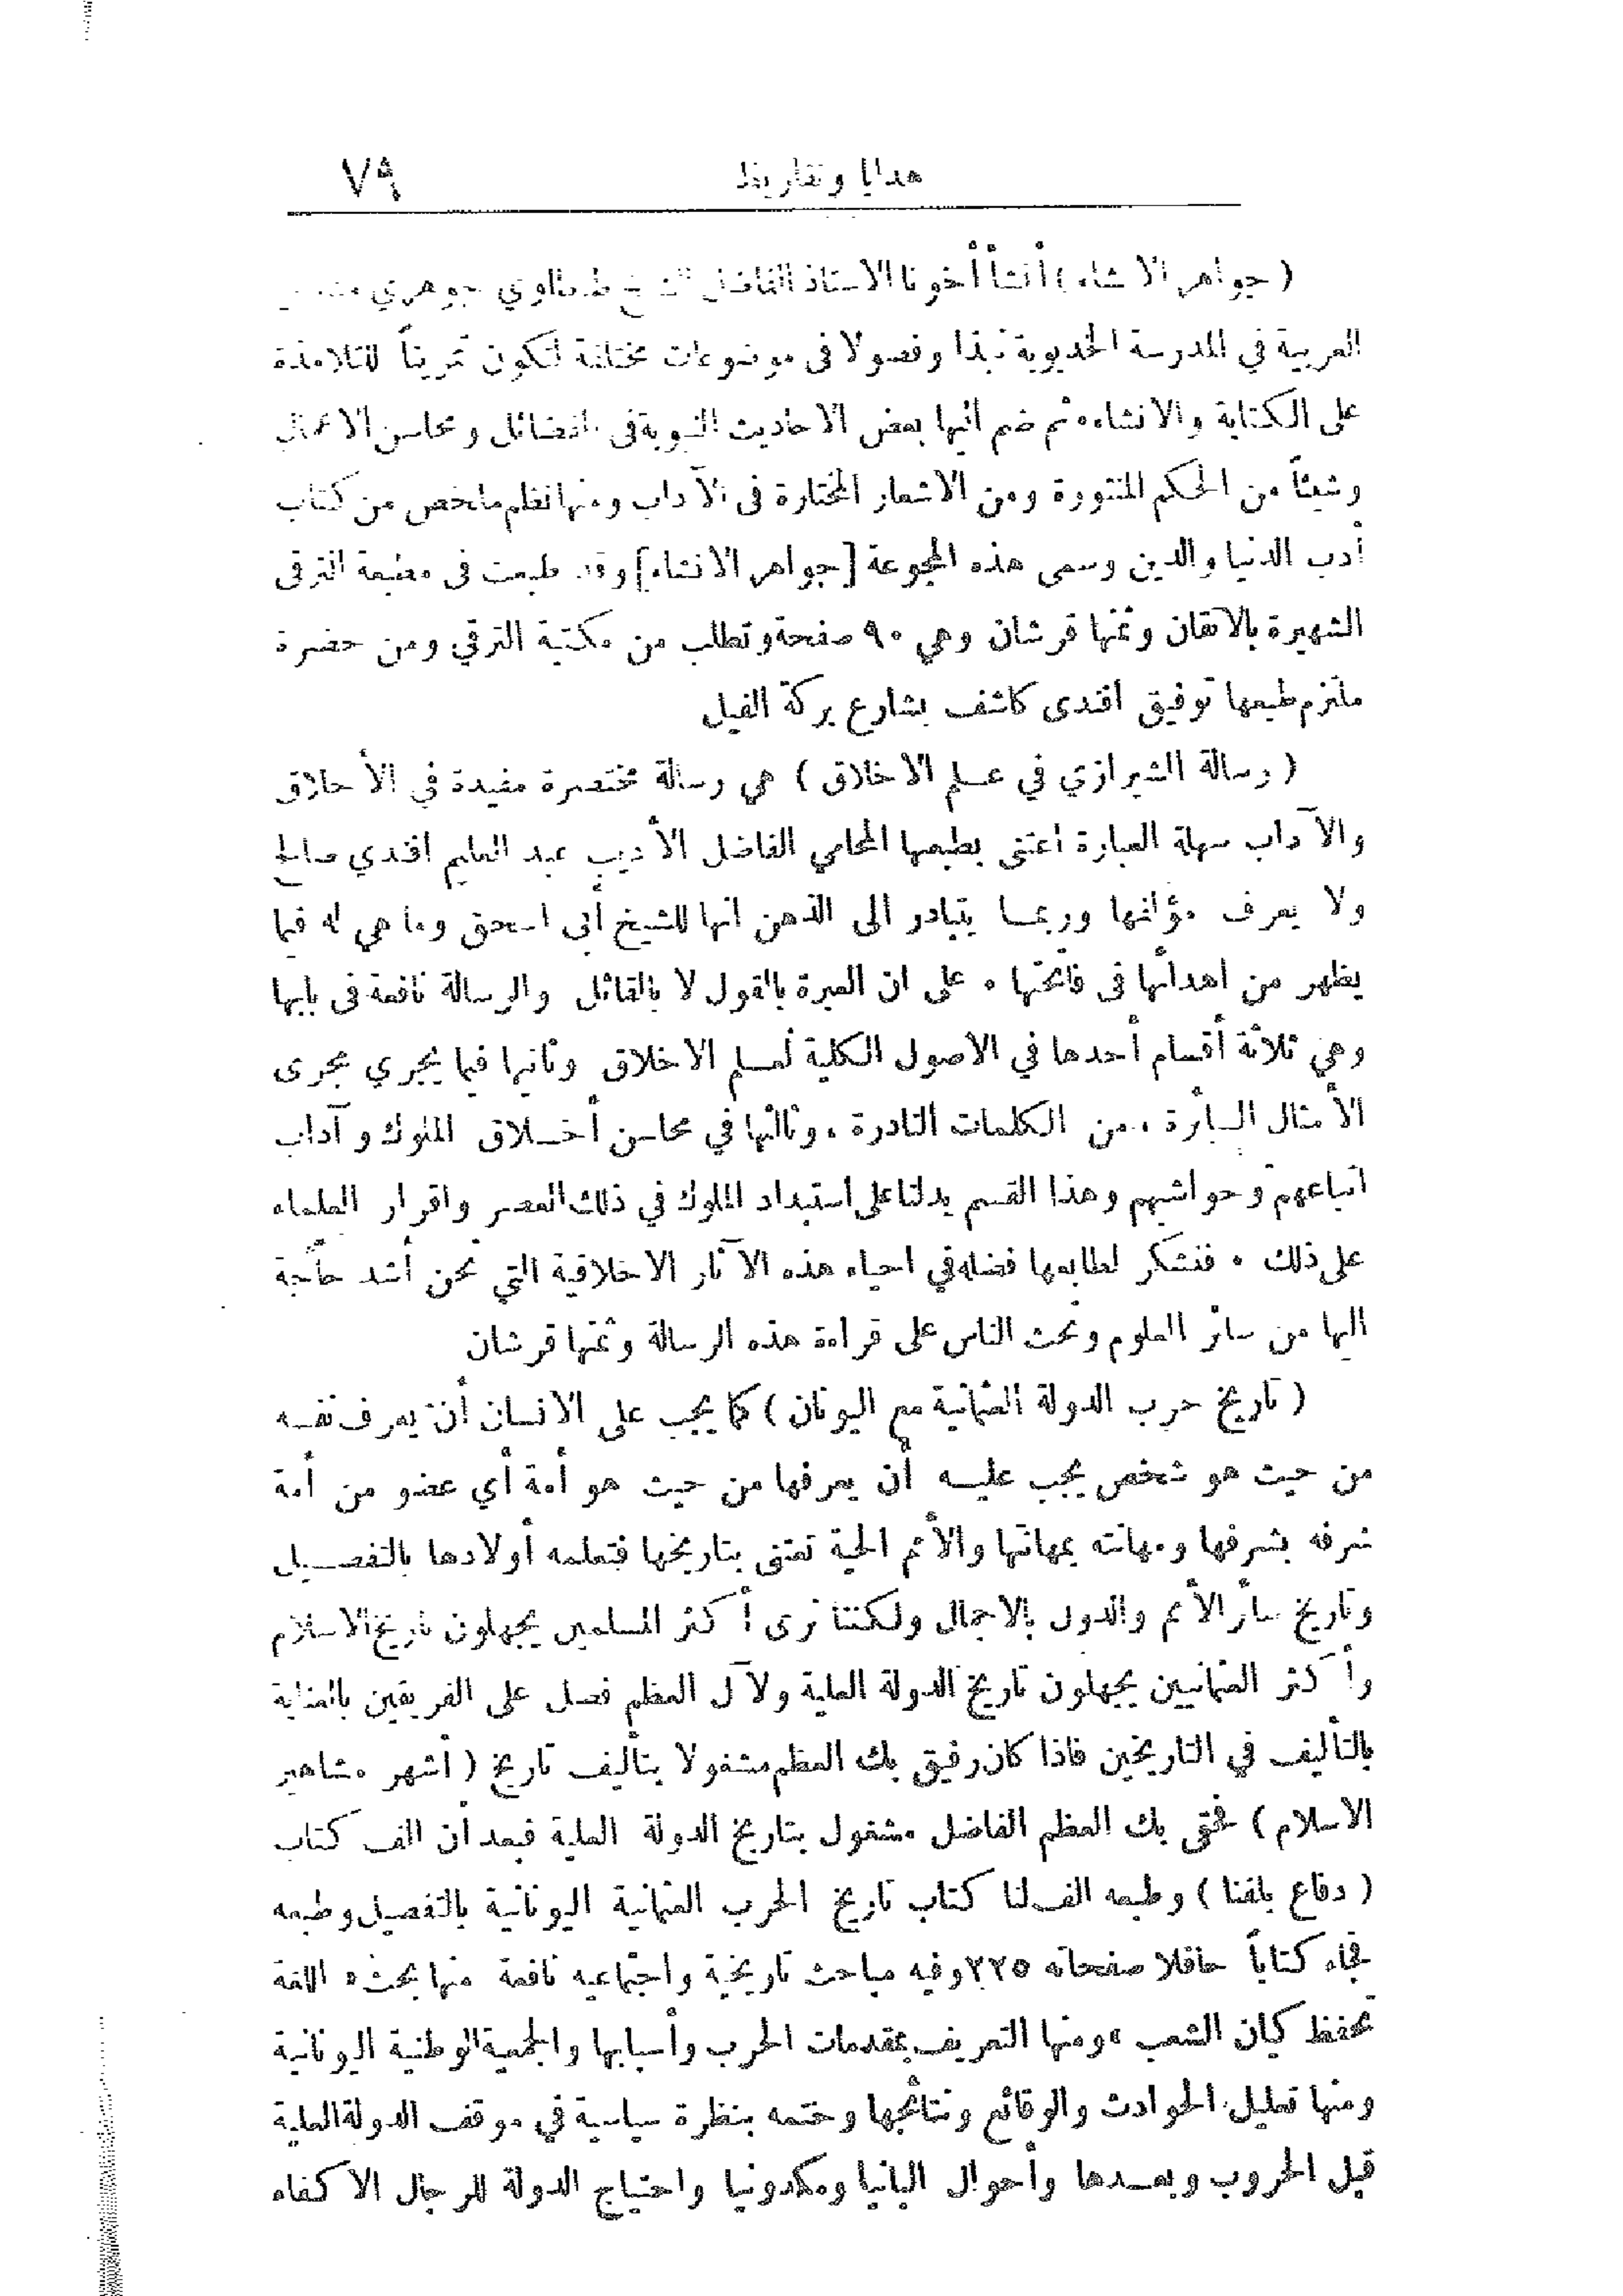 هدايا وتقاريظ ٧٩
( جواهر الانشاء ) أنشأ أخونا الاستاذ الفاضل الشيخ طنطاوي جوهري
العربية في المدرسة الخديوية نبذا وفصولا فى موضوعات مختلفة لتكون تمريناً للتلامذة
على الكتابة والانشاء . ثم ضم اليها بعض الاحاديث النبوية فى الفضائل ومحاسن الاعمال
وشيئاً من الحكم المنثورة ومن الاشعار المختارة فى الآداب ومنها نظم ملخص من كتاب
أدب الدنيا والدين وسمى هذه المجموعة [ جواهر الانشاء ] وقد طبعت فى مطبعة الترقى
الشهيرة بالاتقان وثمنها قرشان وهي ٩٠ صفحة وتطلب من مكتبة الترقي ومن حضرة
ملتزم طبعها توفيق افندى كاشف بشارع بركة الفيل
( رسالة الشيرازي في علم الاخلاق ) هي رسالة مختصرة مفيدة في الأخلاق
والآداب سهلة العبارة اعتنى بطبعها المحامي الفاضل الأديب عبد العليم افندي صالح
ولا يعرف مؤلفها وربما يتبادر الى الذهن انها للشيخ أبي اسحق وما هي له فيما
يظهر من اهدائها فى فاتحتها . على ان العبرة بالقول لا بالقائل والرسالة نافعة فى بابها
وهي ثلاثة أقسام أحدها في الاصول الكلية لعلم الاخلاق وثانيها فيما يجري مجرى
الأمثال السائرة ، من الكلمات النادرة ، وثالثها في محاسن أخلاق الملوك وآداب
اتباعهم وحواشيهم وهذا القسم يدلنا على استبداد الملوك في ذلك العصر واقرار العلماء
على ذلك . فنشكر لطابعها فضله في احياء هذه الآثار الاخلاقية التي نحن أشد حاجة
اليها من سائر العلوم ونحث الناس على قراءة هذه الرسالة وثمنها قرشان
( تاريخ حرب الدولة العثمانية مع اليونان ) كما يجب على الانسان أن يعرف نفسه
من حيث هو شخص يجب عليه أن يعرفها من حيث هو أمة أي عضو من أمة
شرفه بشرفها ومهانته بمهانتها والأمم الحية تعتنى بتاريخها فتعلمه أولادها بالتفصيل
وتاريخ سائر الأمم والدول بالاجمال ولكننا نرى أكثر المسلمين يجهلون تاريخ الاسلام
وأكثر العثمانيين يجهلون تاريخ الدولة العلية ولآل العظم فضل على الفريقين بالعناية
بالتأليف في التاريخين فاذا كان رفيق بك العظم مشغولا بتأليف تاريخ ( أشهر مشاهير
الاسلام ) فحقى بك العظم الفاضل مشغول بتاريخ الدولة العلية فبعد أن الف كتاب
( دفاع بلفنا ) وطبعه الف لنا كتاب تاريخ الحرب العثمانية اليونانية بالتفصيل وطبعه
فجاء كتاباً حافلا صفحاته ٢٢٥ وفيه مباحث تاريخية واجتماعيه نافعة منها بحث « اللغة
تحفظ كيان الشعب » ومنها التعريف بمقدمات الحرب وأسبابها والجمعية الوطنية اليونانية
ومنها تعليل الحوادث والوقائع ونتائجها وختمه بنظرة سياسية في موقف الدولة العلية
قبل الحروب وبعدها وأحوال البانيا ومكدونيا واحتياج الدولة للرجال الاكفاء